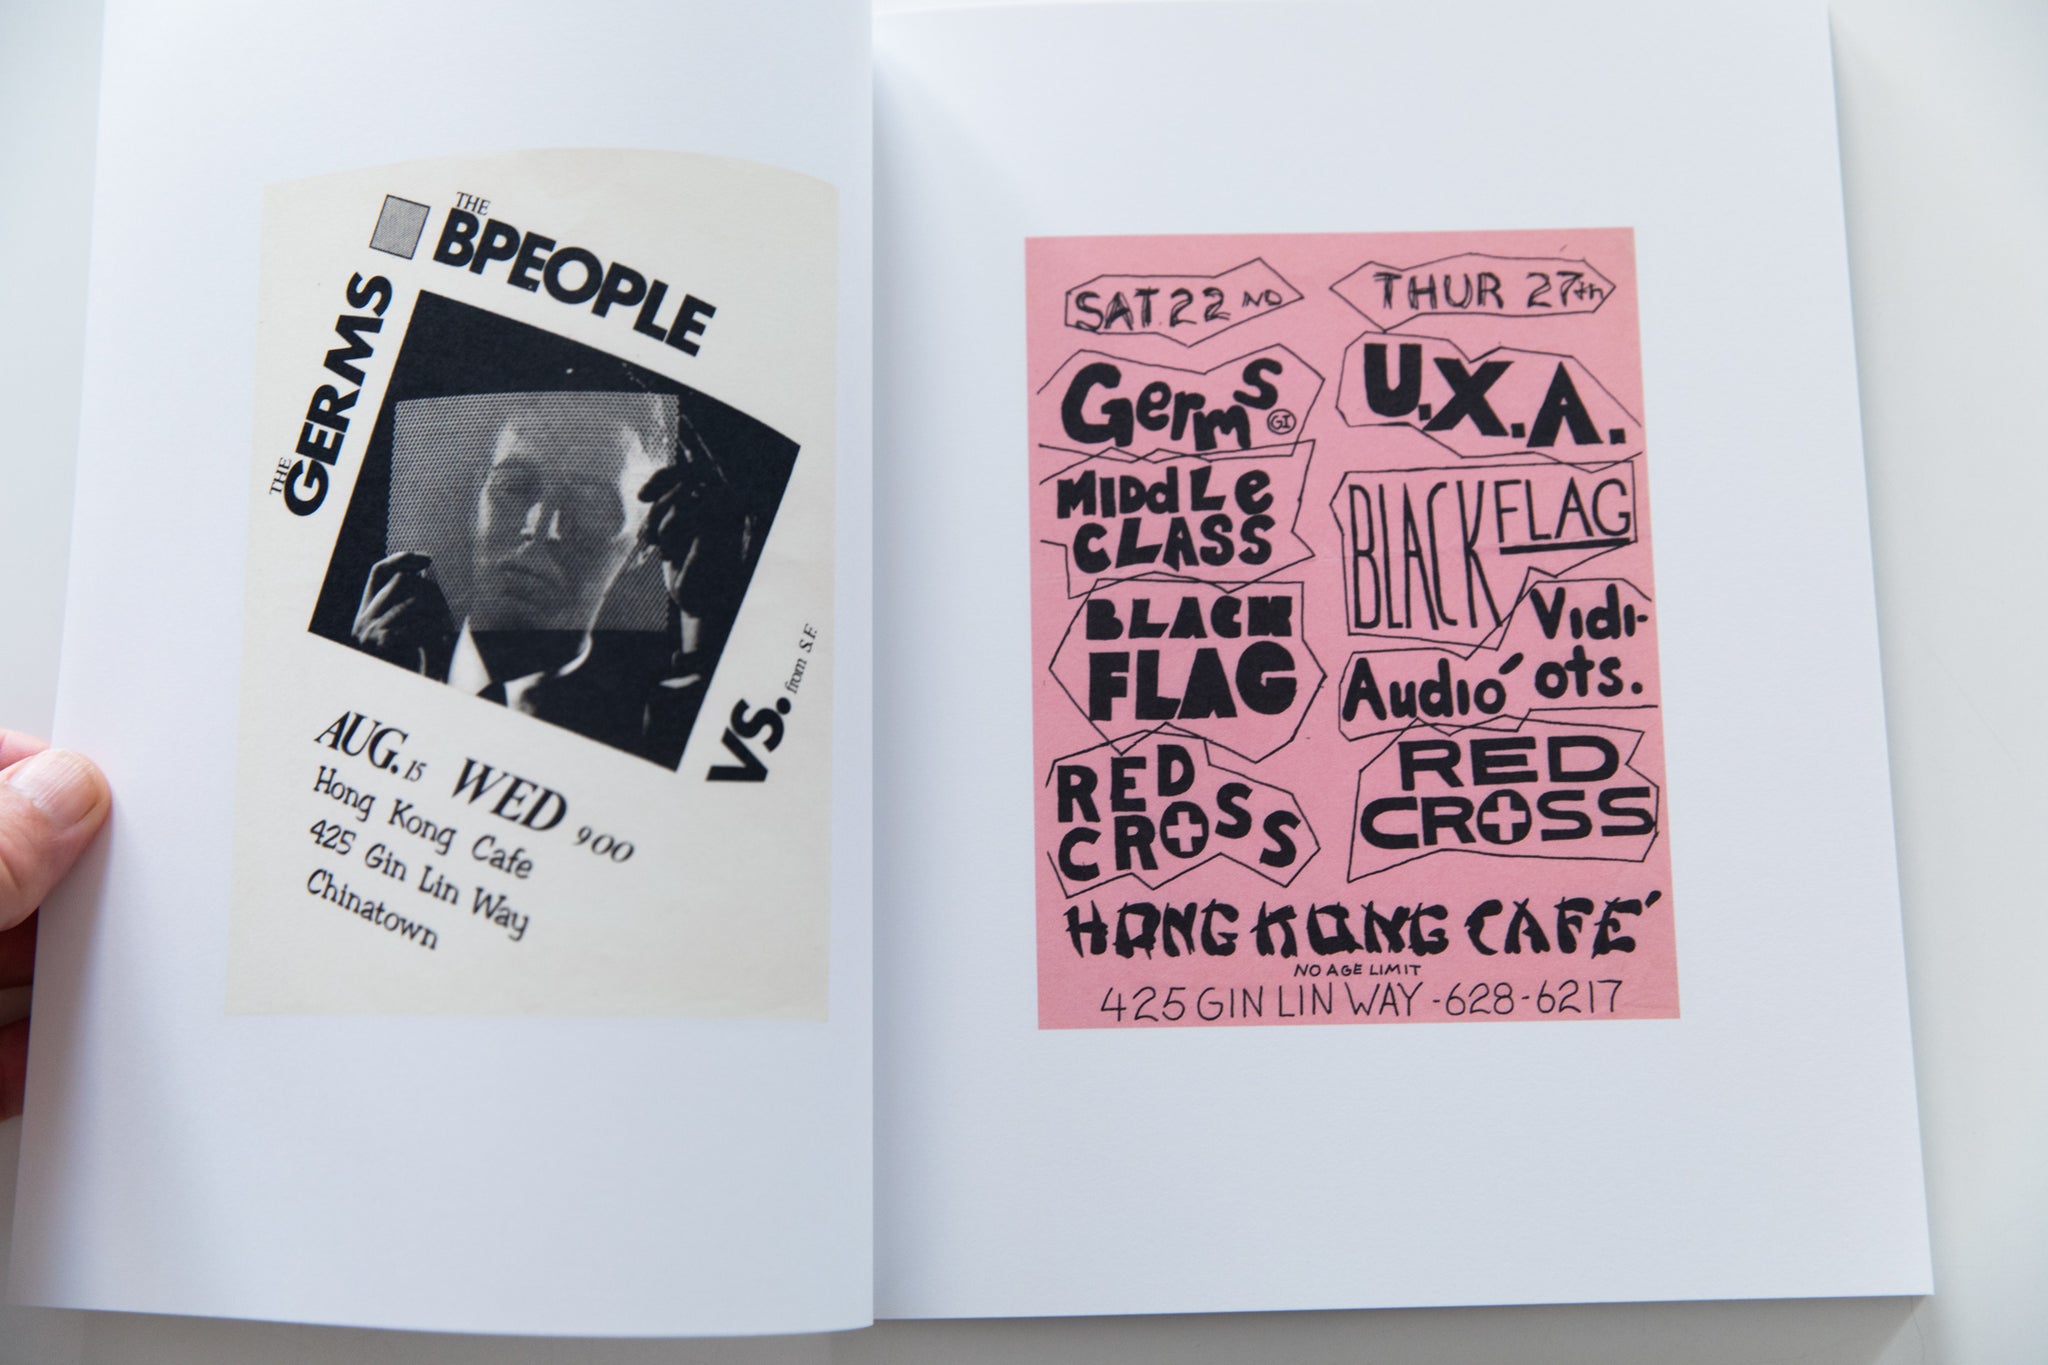 THE
BPEOPLE
THE
GERMS
VS. from S.F.
AUG. 15 WED 900
Hong Kong Cafe
425 Gin Lin Way
Chinatown
SAT. 22 ND
Germs GI
MIDdLe
CLASS
BLACK
FLAG
RED
CROSS
THUR 27th
U.X.A.
BLACK FLAG
Vidi-
Audio' ots.
RED
CROSS
HONG KONG CAFE'
NO AGE LIMIT
425 GIN LIN WAY - 628-6217